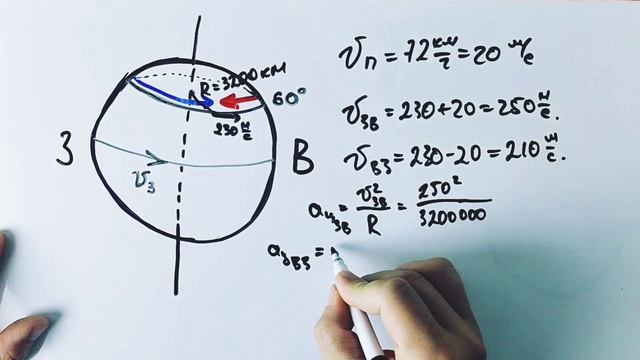 R=3200км
60°
230 м/с
З
В
v₃
vп = 72 км/ч = 20 м/с
vзв = 230+20 = 250 м/с.
vвз = 230-20 = 210 м/с.
aцзв = v²зв/R = 250²/3200000
aцвз =